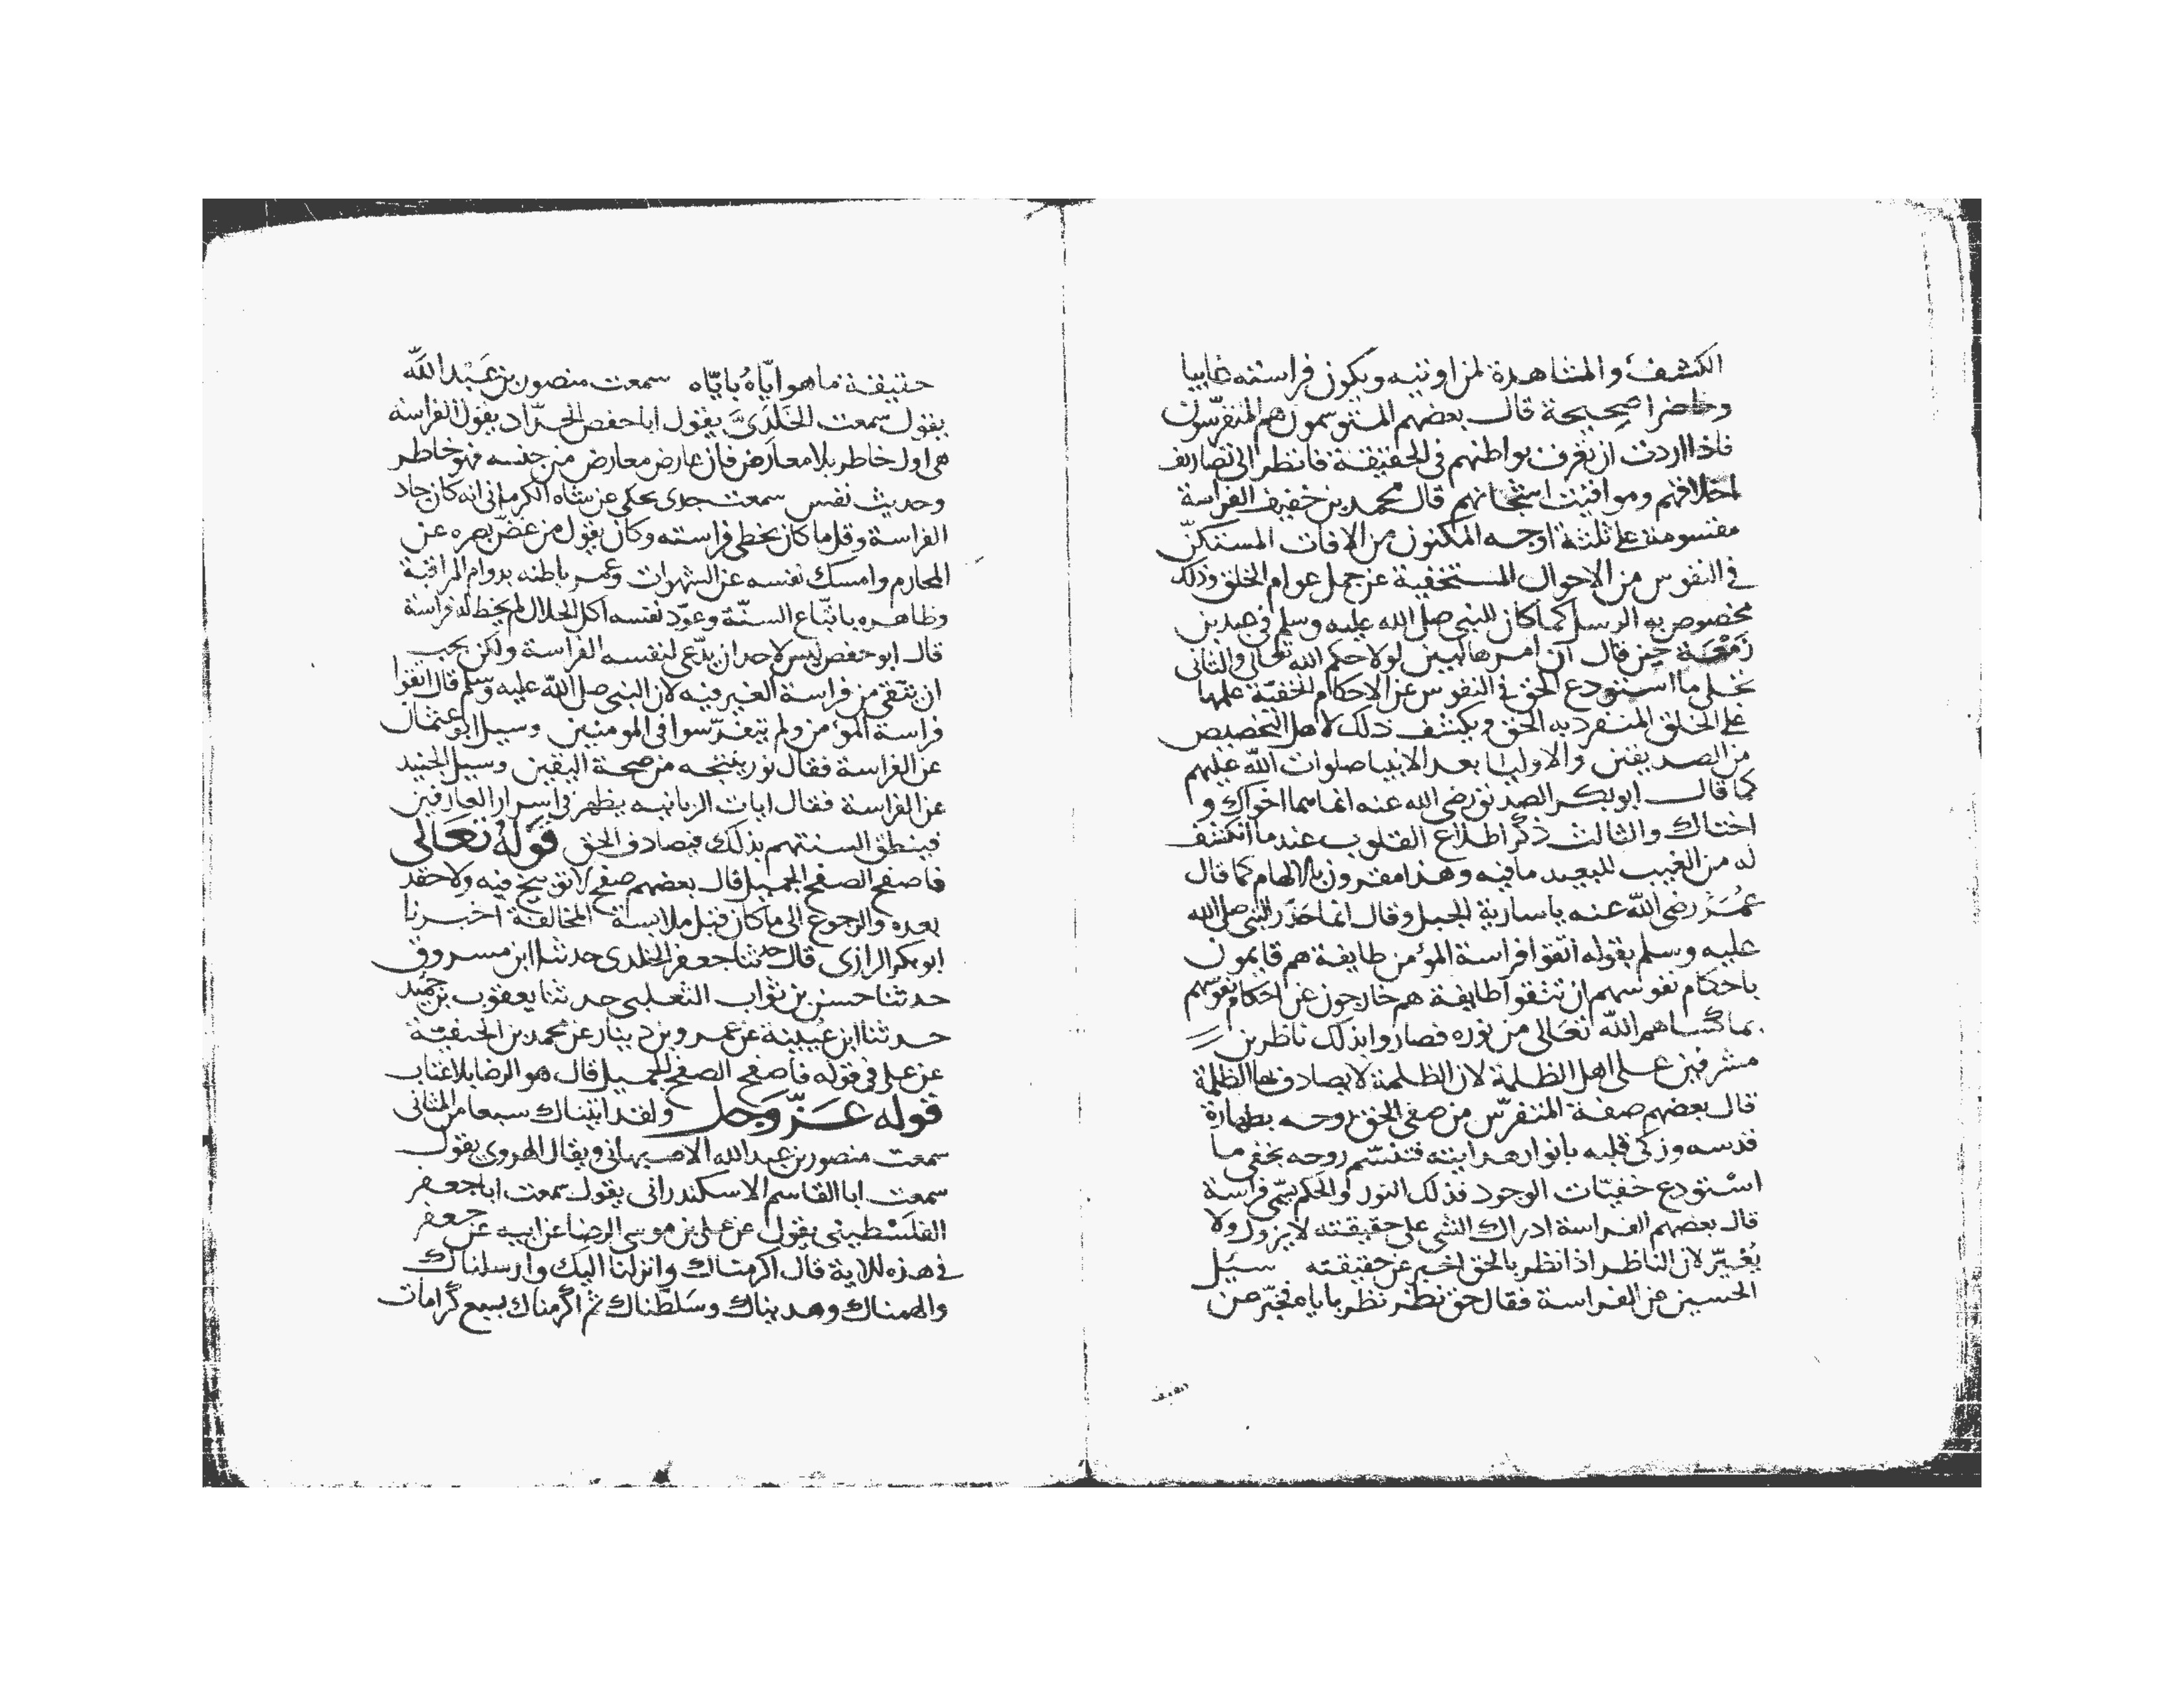 الكشف والمشاهدة لمن اوتيه ويكون فراسته غايبا
وحاضرا صحيحة قال بعضهم المتوسمون هم المتفرسون
فاذا اردت ان تعرف بواطنهم في الحقيقة فانظر الى تصاريف
اخلاقهم ومواقيت قال محمد بن خفيف الفراسة
مقسومة على ثلثة اوجه المكنون من الافات المستكنّ
في النفوس من الاحوال المستخفية عن جمل عوام الخلق وذلك
مخصوص به الرسل كما كان للنبي صلى الله عليه وسلم في عبد بن
زمعة حين قال ان امرها لبين لولا حكم الله تعالى والثاني
تجلى ما استودع الحق في النفوس عن الاحكام الخفيّة علمها
على الخلق المنفرد به الحق ويكشف ذلك لاهل التخصيص
من الصديقين والاوليا بعد الانبيا صلوات الله عليهم
كما قال ابو بكر الصديق رضى الله عنه انما هما اخواك و
اختاك والثالث ذكر اطلاع القلوب عند ما انكشف
له من الغيب للبعيد مافيه وهذا مقرون بالالهام كما قال
عمر رضى الله عنه ياسارية الجبل وقال انما حذر النبي صلى الله
عليه وسلم بقوله اتقوا فراسة المؤمن طايفة هم قايمون
باحكام نفوسهم ان تتقوا طايفة هم خارجون عن احكام نفوسهم
بما كساهم الله تعالى من نوره فصاروا بذلك ناظرين
مشرفين على اهل الظلمة لان الظلمة لا يصادف بها الظلمة
قال بعضهم صفة المتفرّس من صفى الحق روحه بطهارة
قدسه وزكى قلبه بانوار هدايته فتنسّم روحه بخفى ما
استودع خفيّات الوجود فذلك النور والحكم يسمى فراسة
قال بعضهم الفراسة ادراك الشى على حقيقته لا يزول ولا
يُغيّر لان الناظر اذا نظر بالحق اخبر عن حقيقته سيل
الحسين عن الفراسة فقال حق نظر نظر باياه فخبّر عن
حقيقة ما هو اياهُ بايّاه سمعت منصور بن عبد الله
يقول سمعت الخلدىّ يقول ابا حفص الحرّاد يقول الفراسة
هى اول خاطر بلا معارض فان عارض معارض من جنسه فهو خاطر
وحديث نفس سمعت جدى يحكى عن شاه الكرمانى انه كان حاد
الفراسة وقل ما كان يخطى فراسته وكان يقول من غضّ بصره عن
المحارم وامسك نفسه عن الشهوات وعمر باطنه بدوام المراقبة
وظاهره باتبّاع السنّة وعوّد نفسه اكل الحلال لم يخط له فراسة
قال ابو حفص ليس لاحد ان يدّعى لنفسه الفراسة ولكن يجب
ان يتّقى من فراسة الغير فيه لان النبى صلى الله عليه وسلم قال اتقوا
فراسة المؤمن ولم تتفرّسوا فى المومنين وسيل ابو عثمان
عن الفراسة فقال نور ينتجه من صحة اليقين وسيل الجنيد
عن الفراسة فقال ايات الربانيه يظهر فى اسرار العارفين
فينطق السنتهم بذلك فيصادف الحق قوله تعالى
فاصفح الصفح الجميل قال بعضهم صفح لا توبيخ فيه ولا حقد
بعده والرجوع الى ما كان قبل ملابسة المخالفة اخبرنا
ابو بكر الرازى قال حدثنا جعفر الخلدى حدثنا ابن مسروق
حدثنا حسن بن ثواب التعلبى حدثنا يعقوب بن حميد
حدثنا ابن عيينة عن عمرو بن دينار عن محمد بن الحنفيّة
عن على فى قوله فاصفح الصفح الجميل قال هو الرضا بلا عتاب
قوله عزّ وجل ولقد اتيناك سبعا من المثانى
سمعت منصور بن عبد الله الاصبهانى ويقال الهروى يقول
سمعت ابا القاسم الاسكندرانى يقول سمعت ابا جعفر
الفلسطينى يقول عن على بن موسى الرضا عن ابيه عن جعفر
فى هذه الاية قال اكرمناك وانزلنا اليك وارسلناك
والهمناك وهديناك وسلّطناك ثم اكرمناك بسبع كرامات